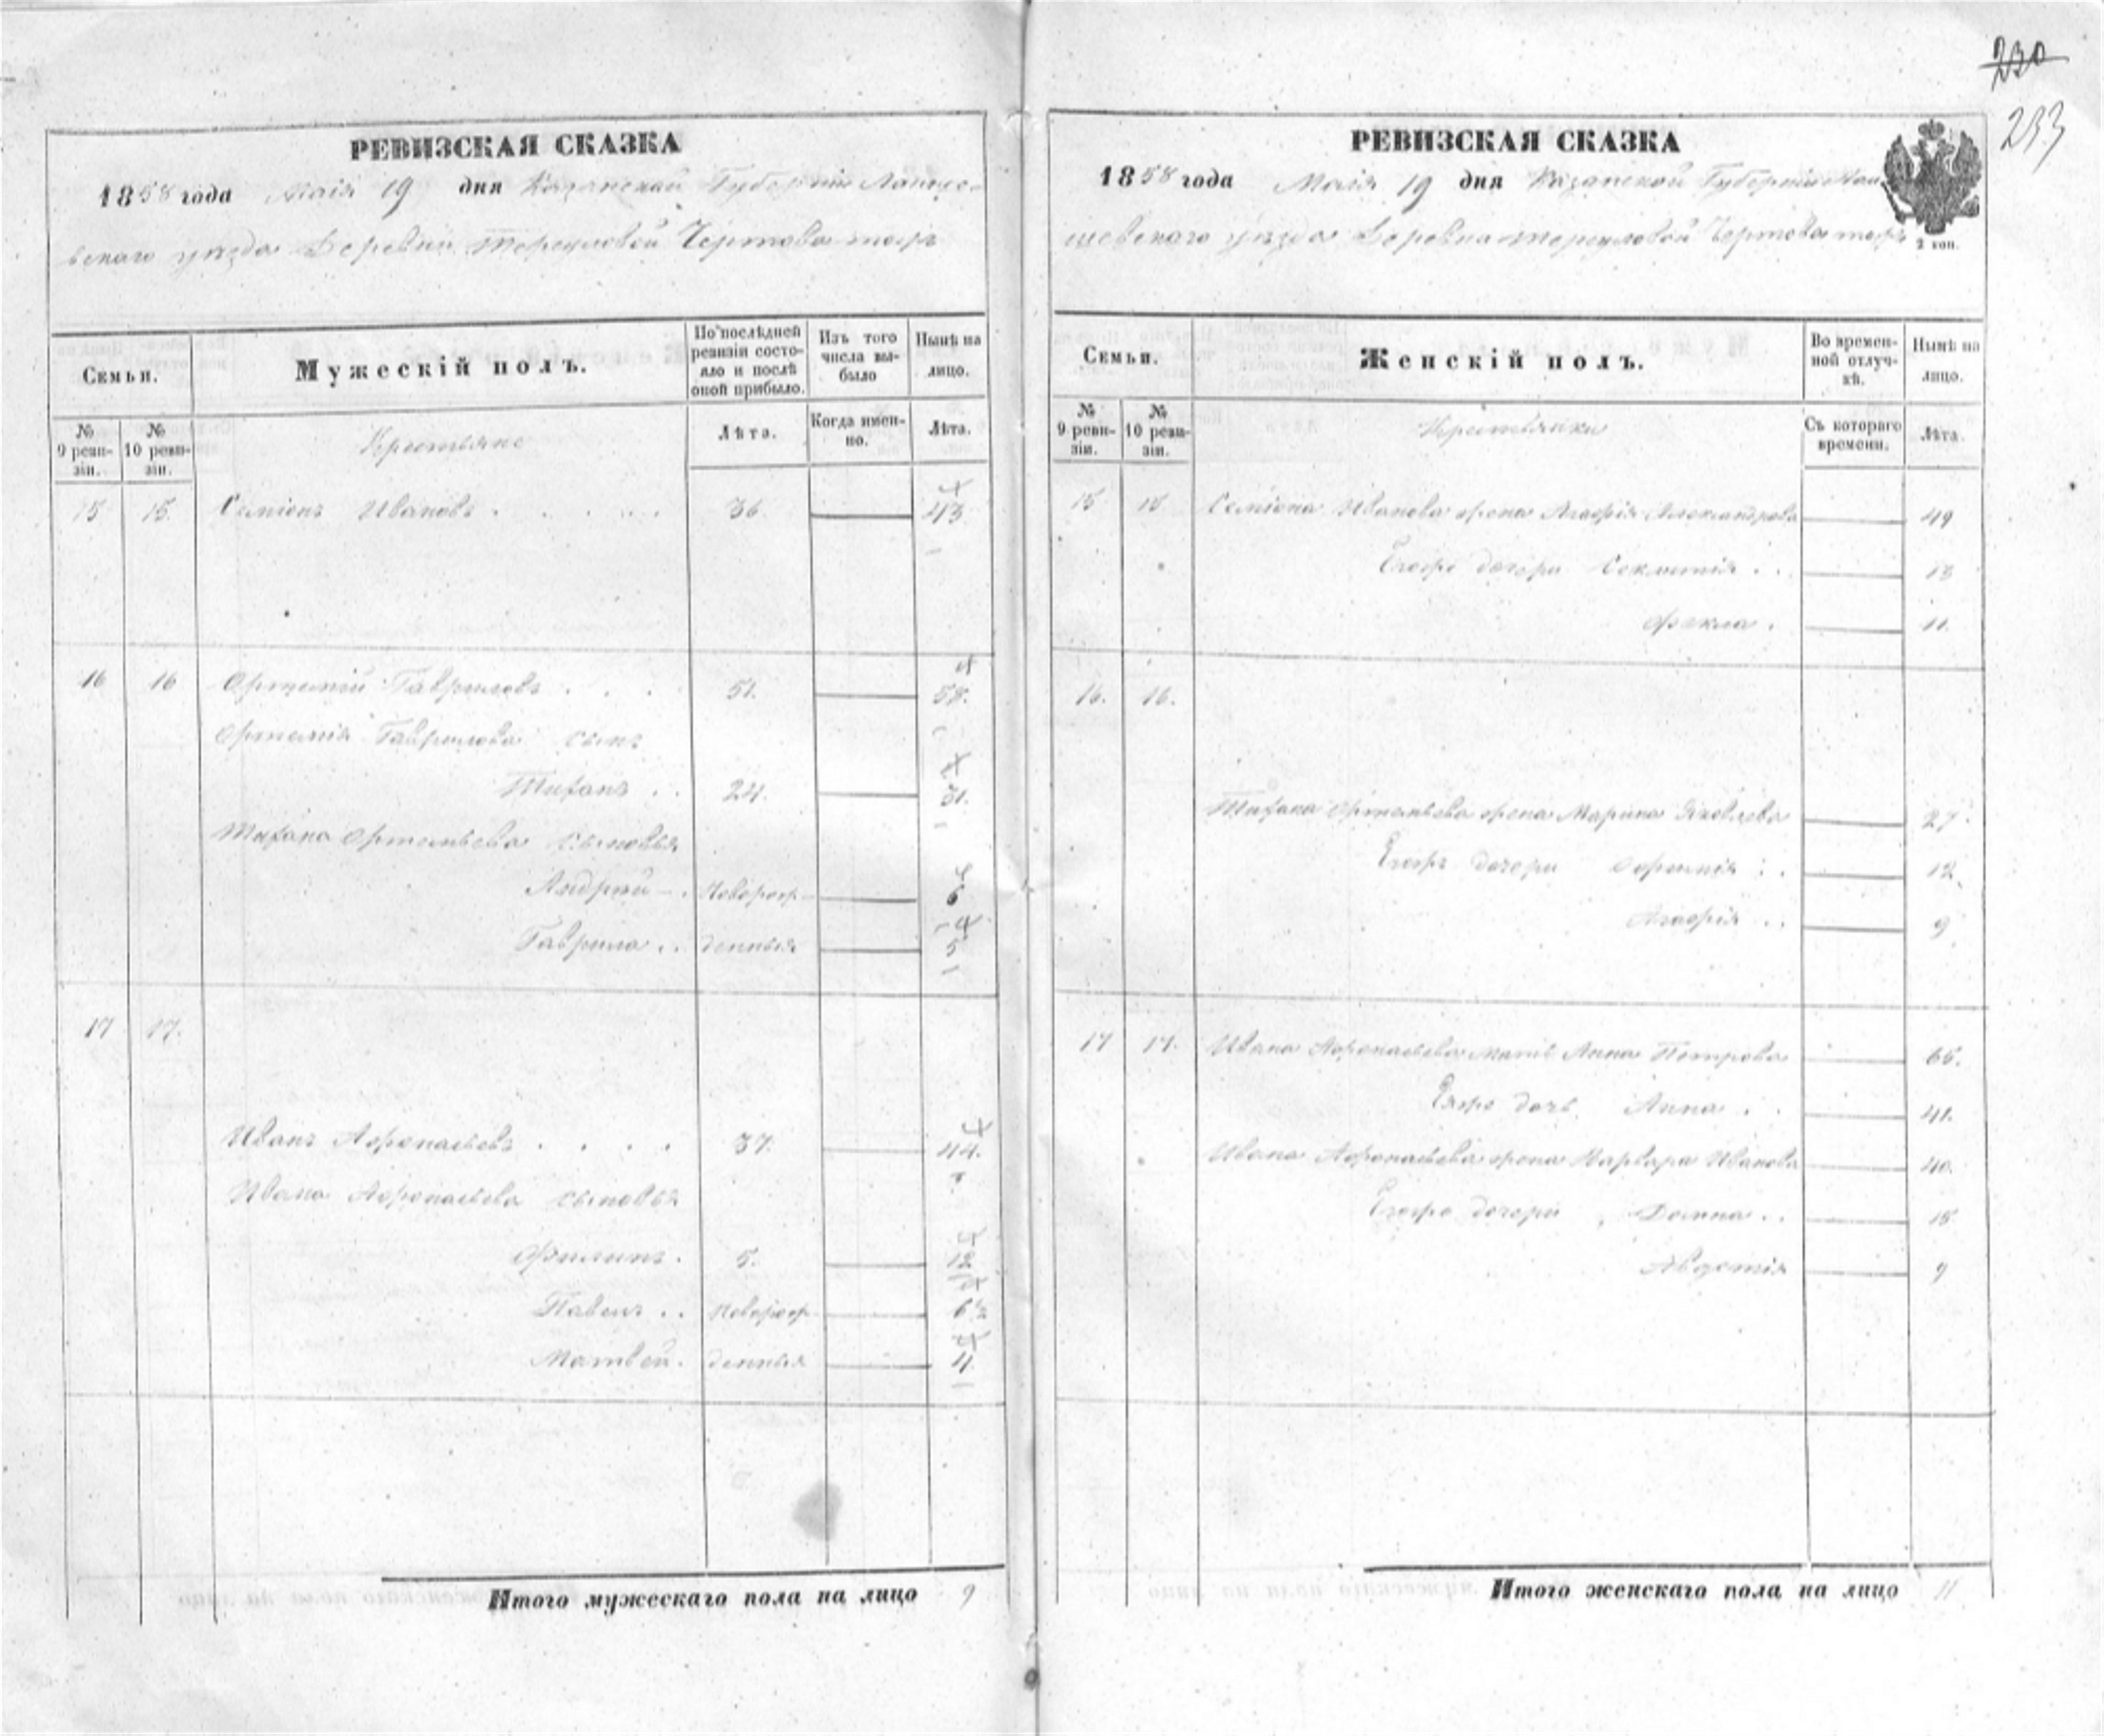 230
233
РЕВИЗСКАЯ СКАЗКА
1858 года Маія 19 дня Казанской Губерніи Лаише-
вскаго уѣзда Деревни Чертова тожъ
Семьи.
Мужескій полъ.
По послѣдней ревизіи состо-яло и послѣ оной прибыло.
Изъ того числа вы-было
Нынѣ на лицо.
№ 9 реви-зіи.
№ 10 реви-зіи.
Крестьяне
Лѣта.
Когда имен-но.
Лѣта.
15 15. Семіонъ Ивановъ . . . . . 36. 43
16 16 Артемій Гавриловъ . . . 51. 58.
Артемія Гаврилова сынъ
Тиханъ . . 24. 31.
Тихана Артемьева сыновья
Андрей . Новорож- 6
Гаврила . . денныя 5
17 17.
Иванъ Афонасьевъ . . . . 37. 44.
Ивана Афонасьева сыновья
Филипъ . 5. 12
Павелъ . . Новорож 6
Матвей . денныя
Итого мужескаго пола на лицо 9
РЕВИЗСКАЯ СКАЗКА
1858 года Маія 19 дня Казанской Губерніи Лаи
шевскаго уѣзда Деревна Чертова тожъ
2 коп.
Семьи.
Женскій полъ.
Во времен-ной отлуч-кѣ.
Нынѣ на лицо.
№ 9 реви-зіи.
№ 10 реви-зіи.
Крестьянки
Съ котораго времени.
Лѣта.
15 15 Семіона Иванова жена Агафія Александрова 49
Егожъ дочери Секлитія . . 13
Фекла . 11.
16. 16.
Тихана Артемьева жена Марина Яковлева 27.
Егожъ дочери . . 12.
Агафія . . 9
17 17. Ивана Афонасьева мать Анна Петрова 65.
Еяжъ дочь Анна . . 41.
Ивана Афонасьева жена Варвара Иванова 40.
Егожъ дочери Домна . . 15
Авдотія 9
Итого женскаго пола на лицо 11